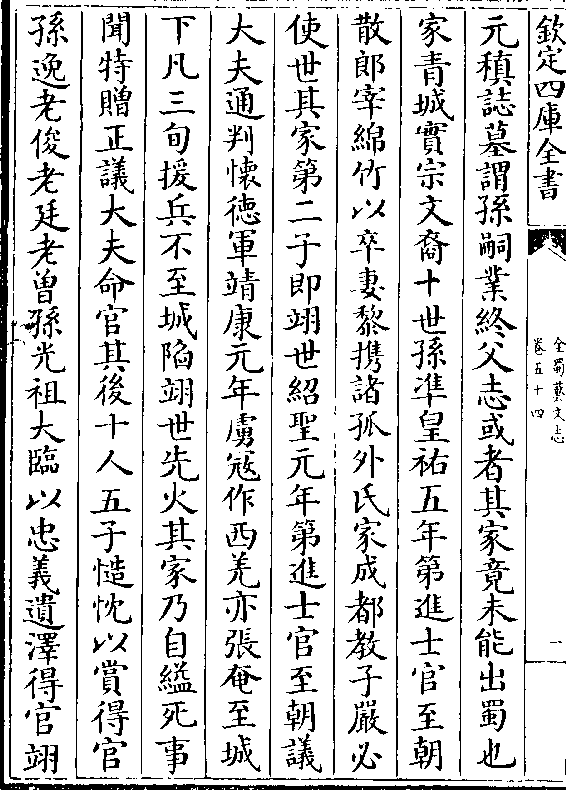 欽定四庫全書
全蜀藝文志
卷五十四
一
元稹誌墓謂孫嗣業終父志或者其家竟未能出蜀也
家青城實宗文裔十世孫準皇祐五年第進士官至朝
散郎宰綿竹以卒妻黎携諸孤外氏家成都教子嚴必
使世其家第二子即翊世紹聖元年第進士官至朝議
大夫通判懷德軍靖康元年虜寇作西羌亦張奄至城
下凡三旬援兵不至城陷翊世先火其家乃自縊死事
聞特贈正議大夫命官其後十人五子慥忱以賞得官
孫逸老俊老廷老曾孫光祖大臨以忠義遺澤得官翊